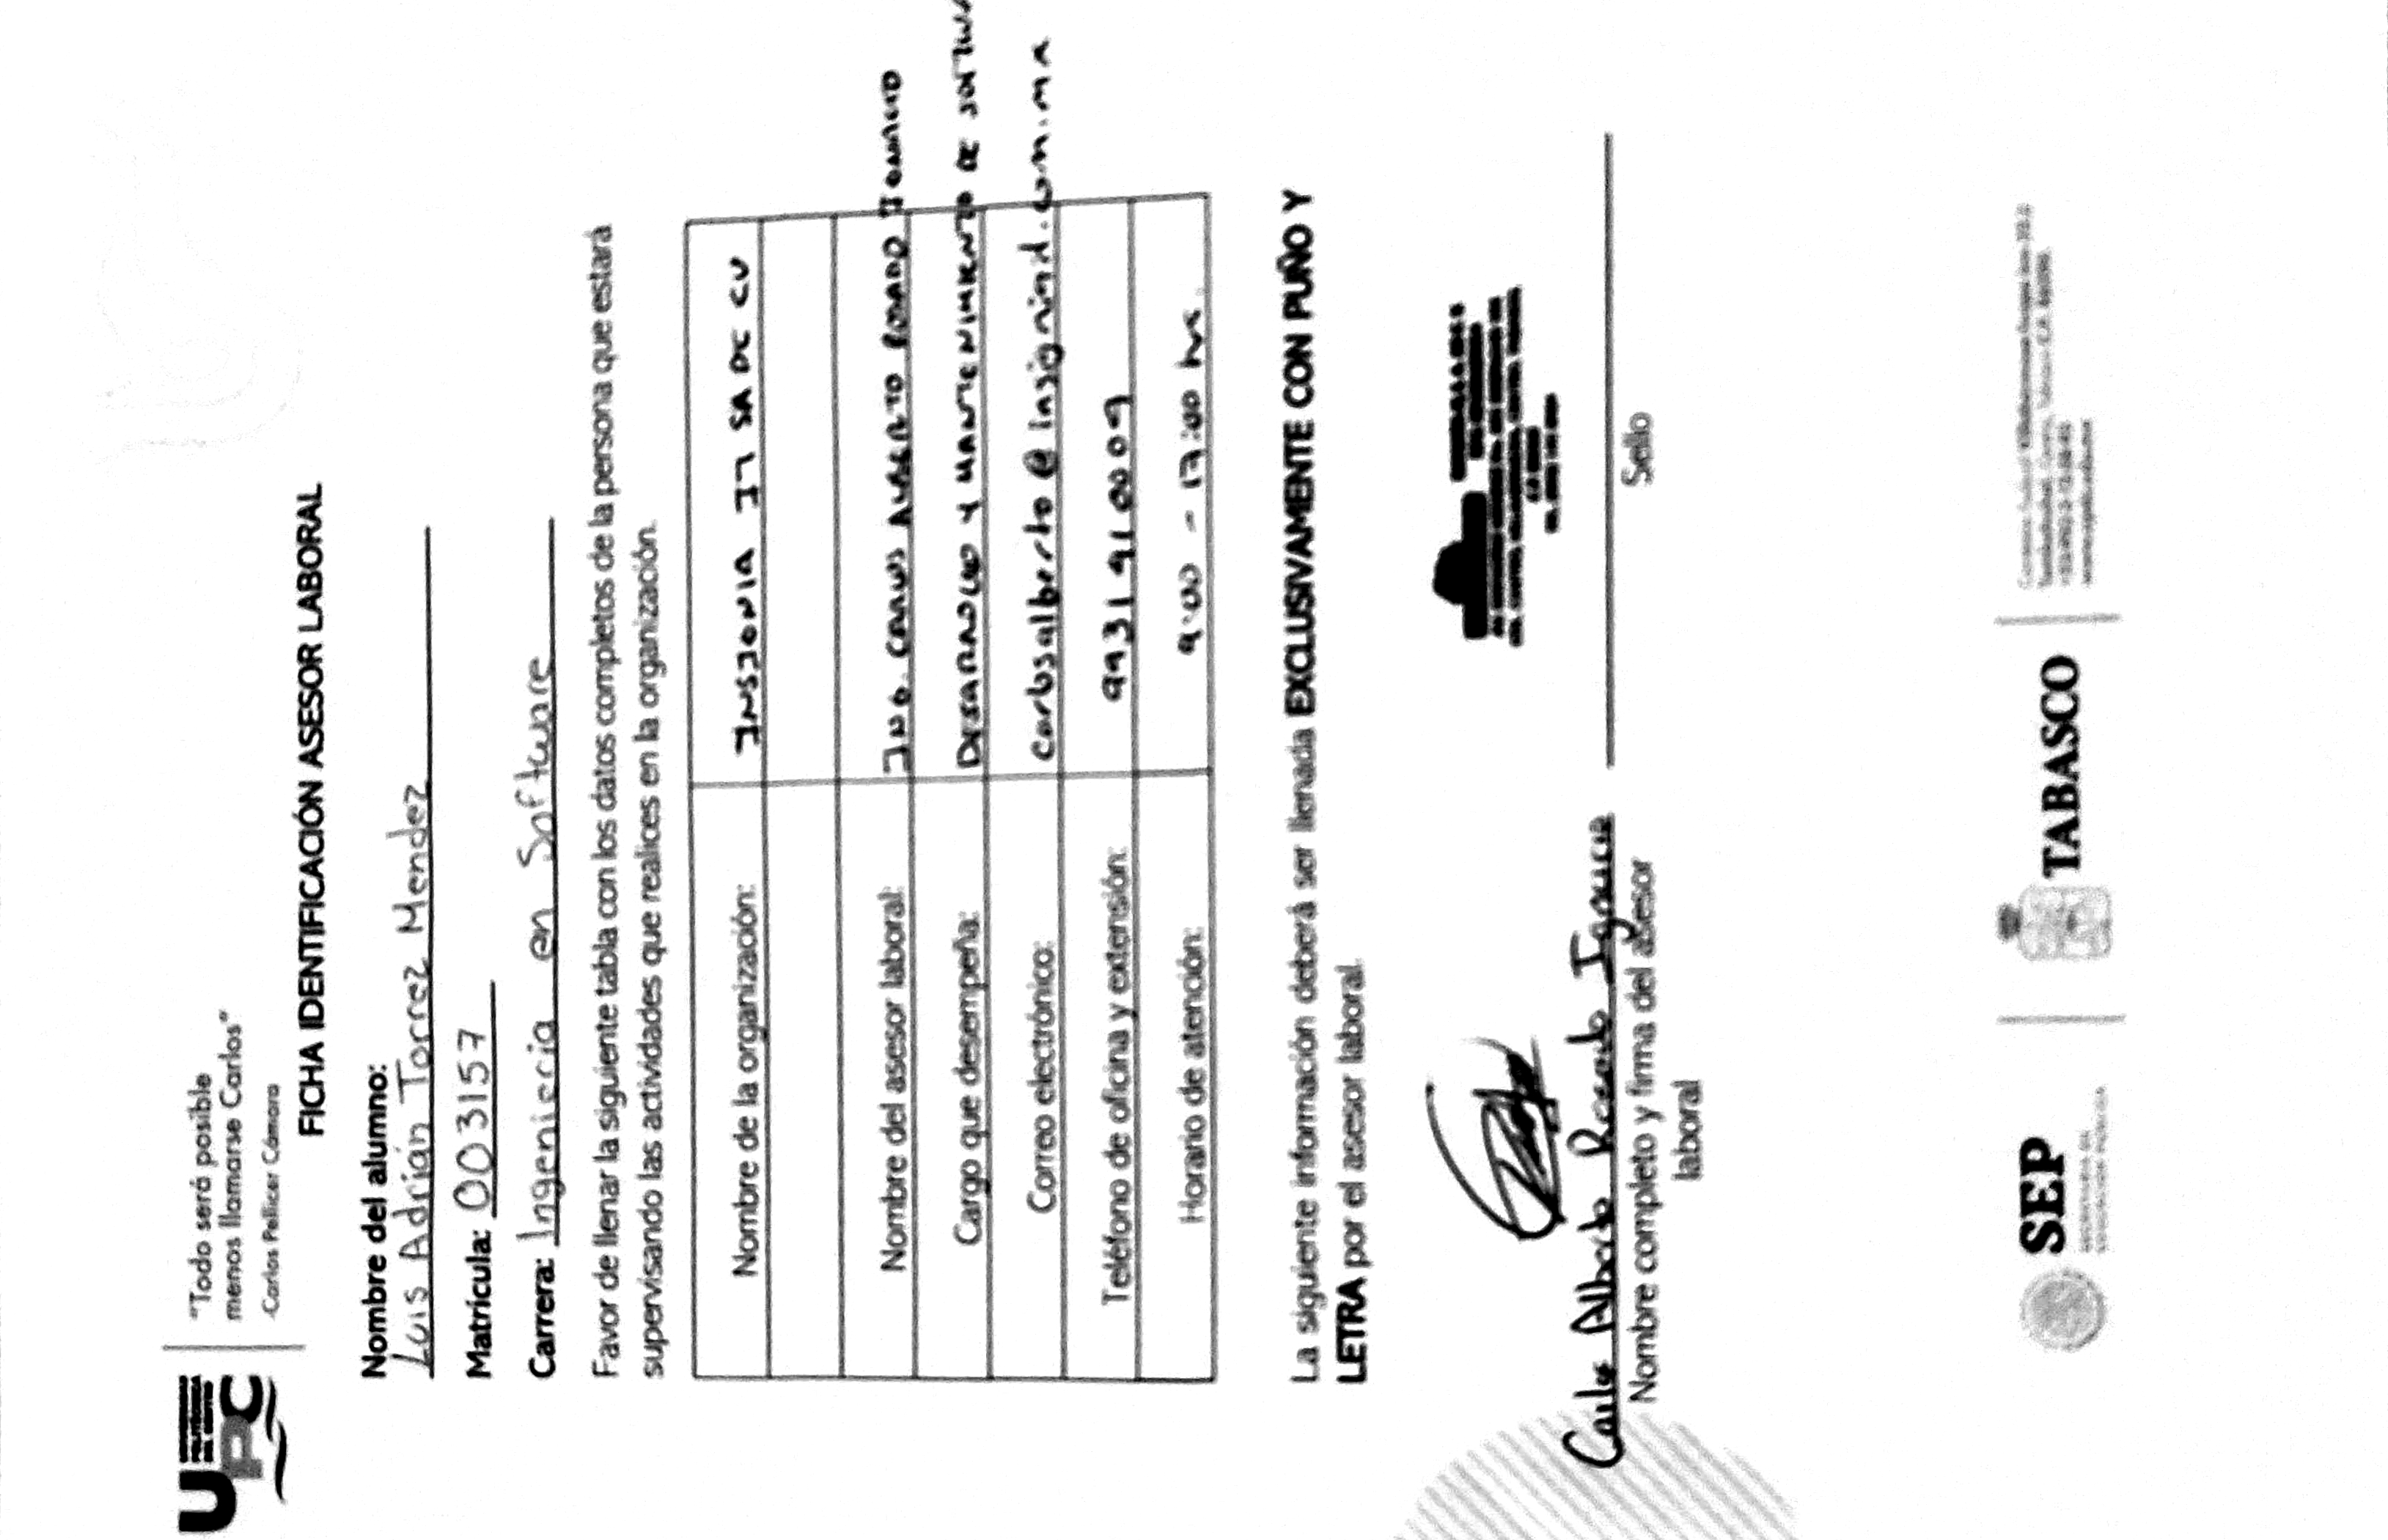 UPC
UNIVERSIDAD
POLITÉCNICA
DEL CENTRO
"Todo será posible
menos llamarse Carlos"
-Carlos Pellicer Cámara
FICHA IDENTIFICACIÓN ASESOR LABORAL
Nombre del alumno:
Luis Adrián Torrez Mendez
Matrícula: 003157
Carrera: Ingenieria en Software
Favor de llenar la siguiente tabla con los datos completos de la persona que estará
supervisando las actividades que realices en la organización.
Nombre de la organización: INSIGNIA IT SA DE CV
Nombre del asesor laboral: ING. CARLOS ALBERTO ROSADO IGNACIO
Cargo que desempeña: DESARROLLO Y MANTENIMIENTO DE
Correo electrónico:
Teléfono de oficina y extensión: 9931910009
Horario de atención: 9:00 - 17:00 hrs.
La siguiente información deberá ser llenada EXCLUSIVAMENTE CON PUÑO Y
LETRA por el asesor laboral.
Carlos Alberto Rosado Ignacio
Nombre completo y firma del asesor
laboral
Sello
SEP
SECRETARÍA DE
EDUCACIÓN PÚBLICA
TABASCO